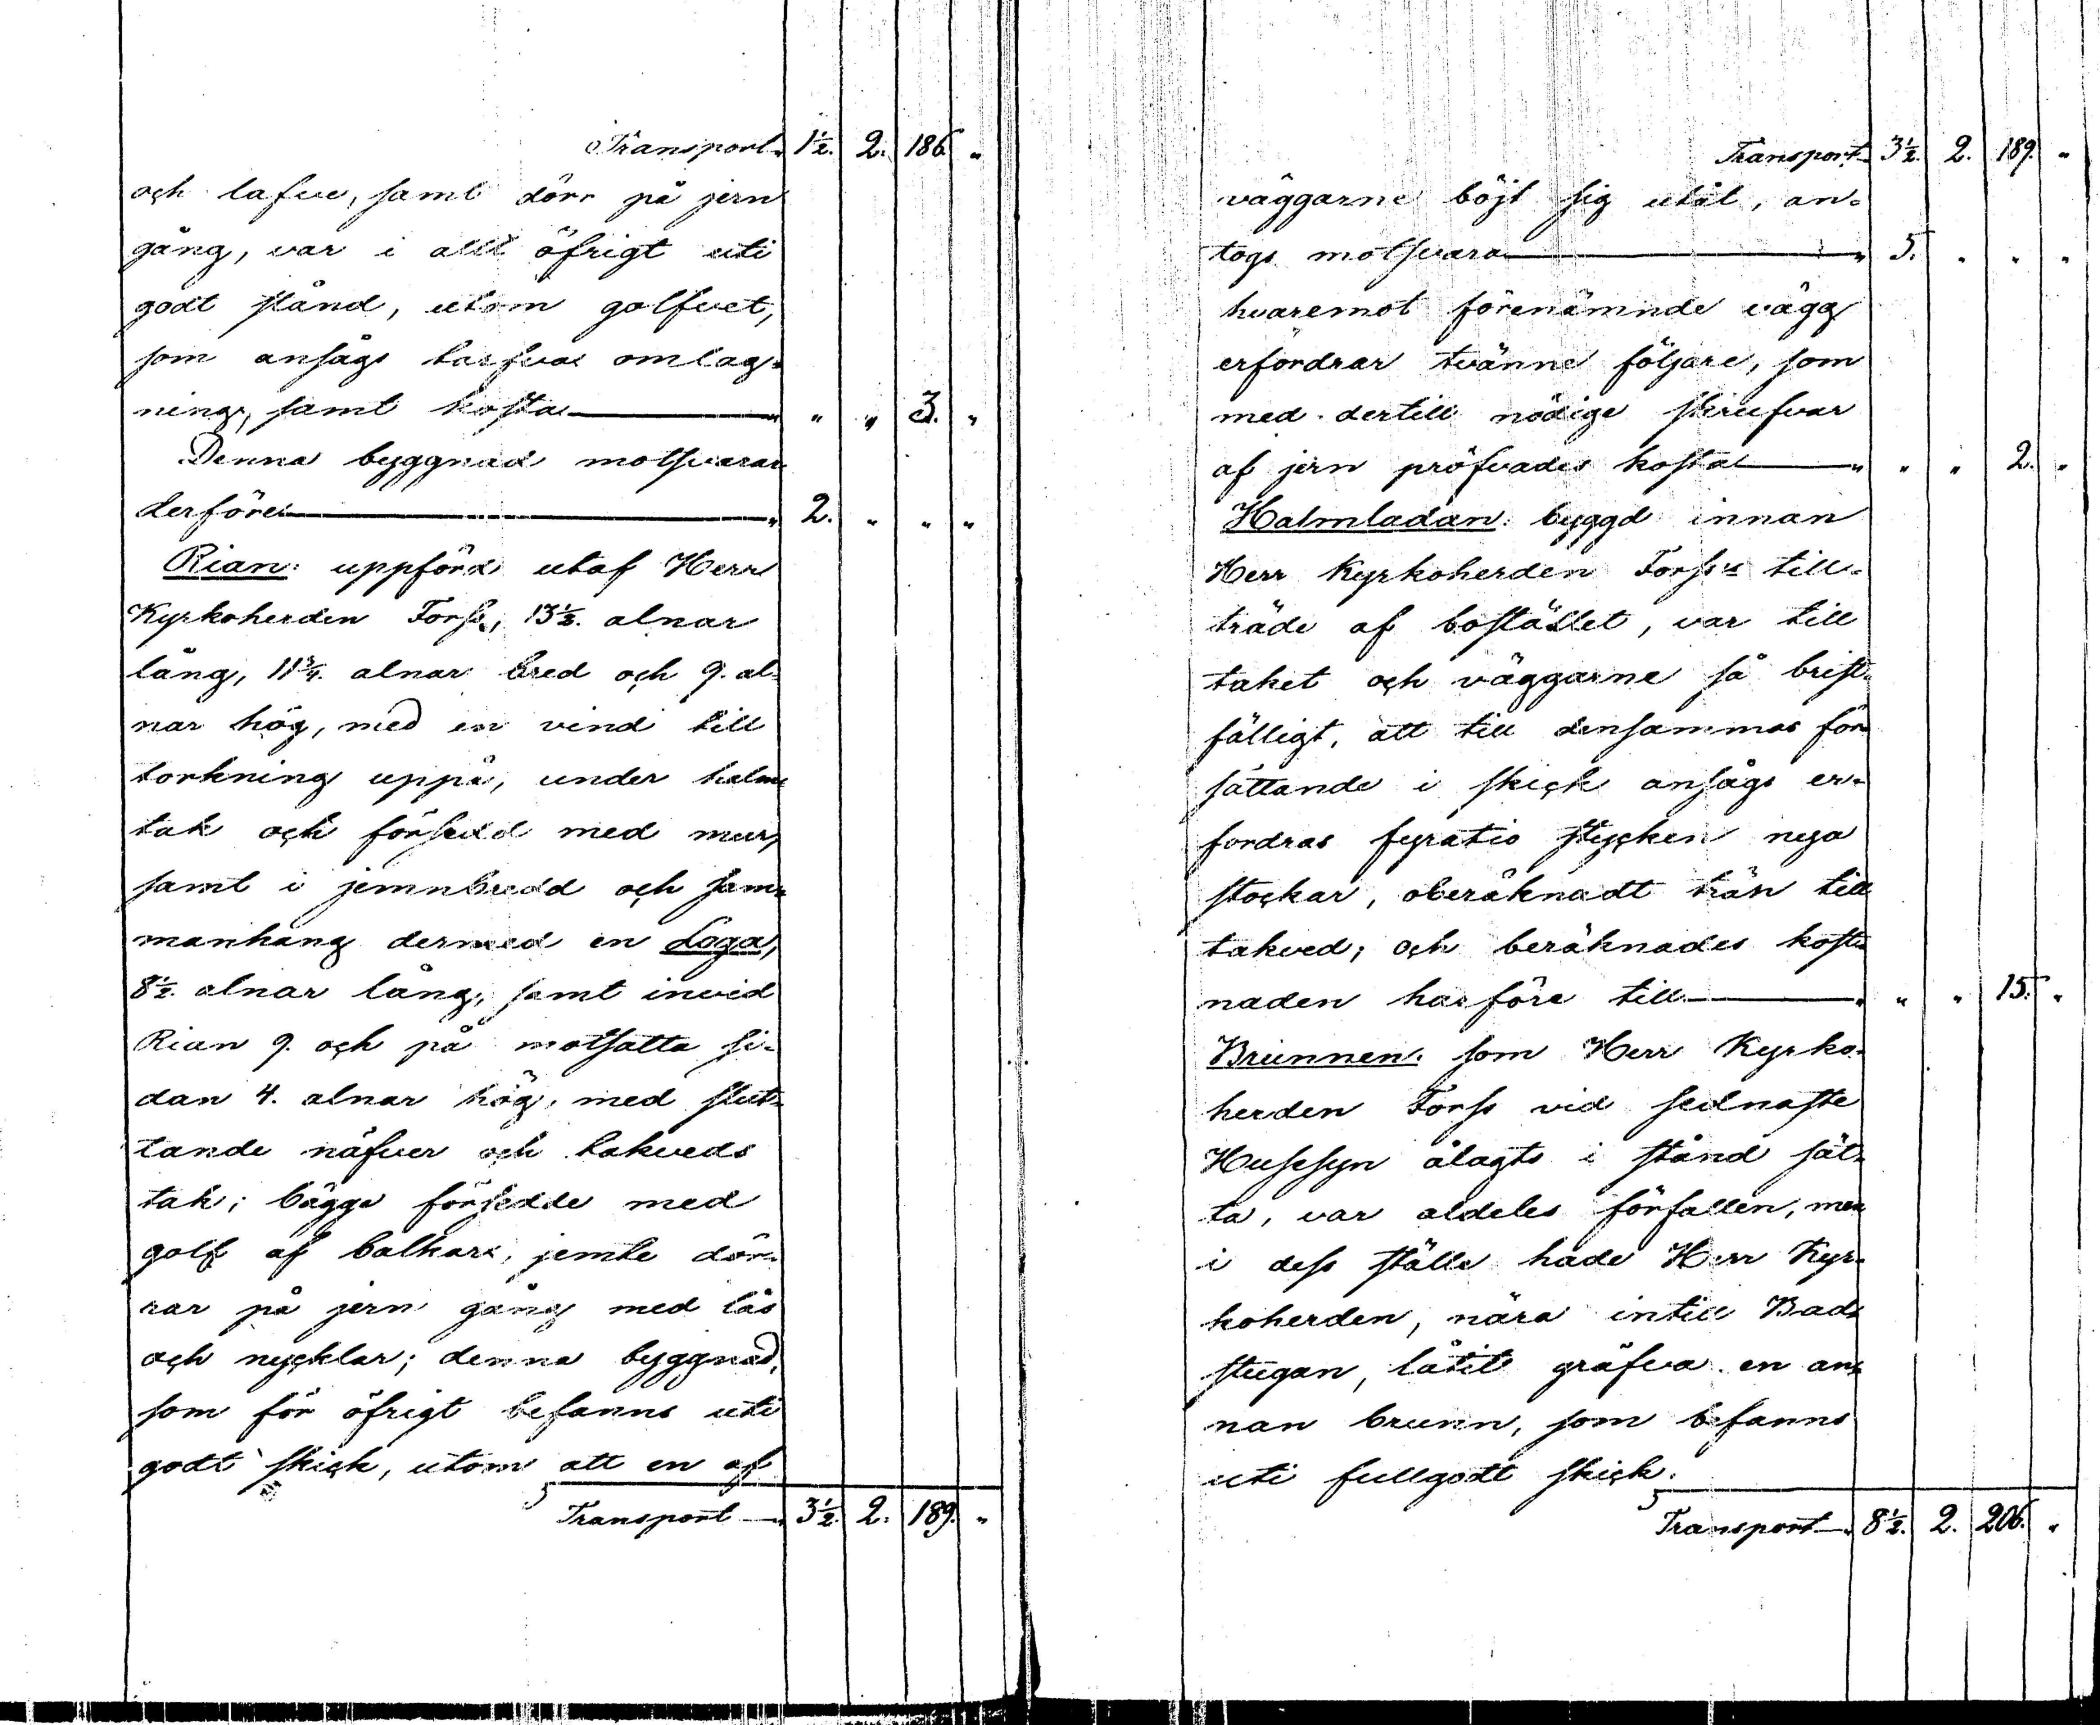 Transport " 1½. 2. 186. "
och lafve, samt dörr på jern
gång, var i allt öfrigt uti
godt stånd, utom golfvet,
som ansågs tarfva omlag-
ning, samt kosta — " " " 3. "
Denna byggnad motsvarar
derföre — " 2. " " "
Rian: uppförd utaf Herr
Kyrkoherden Forss, 13½. alnar
lång, 11¾. alnar bred och 9. al-
nar hög, med en vind till
torkning uppå, under halm
tak och försedd med mur,
samt i jemnbredd och sam-
manhang dermed en Loga,
8½. alnar lång, samt invid
Rian 9. och på motsatta si-
dan 4. alnar hög, med slut-
tande näfver och takveds
tak; bägge försedde med
golf af balkar, jemte dör-
rar på jern gång med lås
och nycklar; denna byggnad,
som för öfrigt befanns uti
godt skick, utom att en af
Transport — " 3½. 2. 189. "
Transport " 3½. 2. 189. "
väggarne böjt sig utåt, an-
togs motsvara — " 5. " " "
hvaremot förenämnde vägg
erfordrar tvänne följare, som
med dertill nödige skrufvar
af jern pröfvades kosta — " " " 2. "
Halmladan: byggd innan
Herr Kyrkoherden Forss's till-
träde af bostället, var till
taket och väggarne så brist-
fälligt, att till densammas för
sättande i skick ansågs er-
fordras fyratio stycken nya
stockar, oberäknadt trän till
takved; och beräknades kost-
naden härföre till — " " " 15. "
Brunnen: som Herr Kyrko-
herden Forss vid sednaste
Husesyn ålagts i stånd sät-
ta, var aldeles förfallen, men
i dess ställe hade Herr Kyr-
koherden, nära intill Bad-
stugan, låtit gräfva en an-
nan brunn, som befanns
uti fullgodt skick.
Transport — " 8½. 2. 206. "